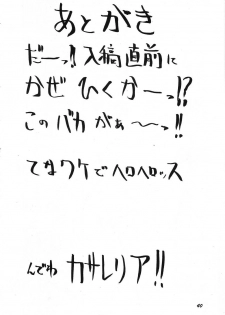 あとがき
だーっ!入稿直前に
かぜひくかーっ!?
このバカがぁ〜〜っ!!
てなワケでヘロヘロッス
んでわ カサレリア!!
40